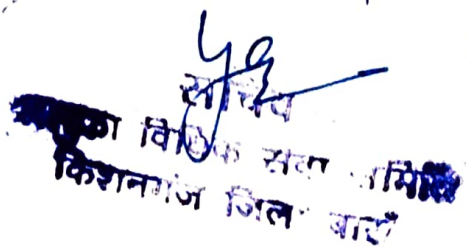 सचिव
विधिक सेवा समिति
किशनगंज जिला बाराँ